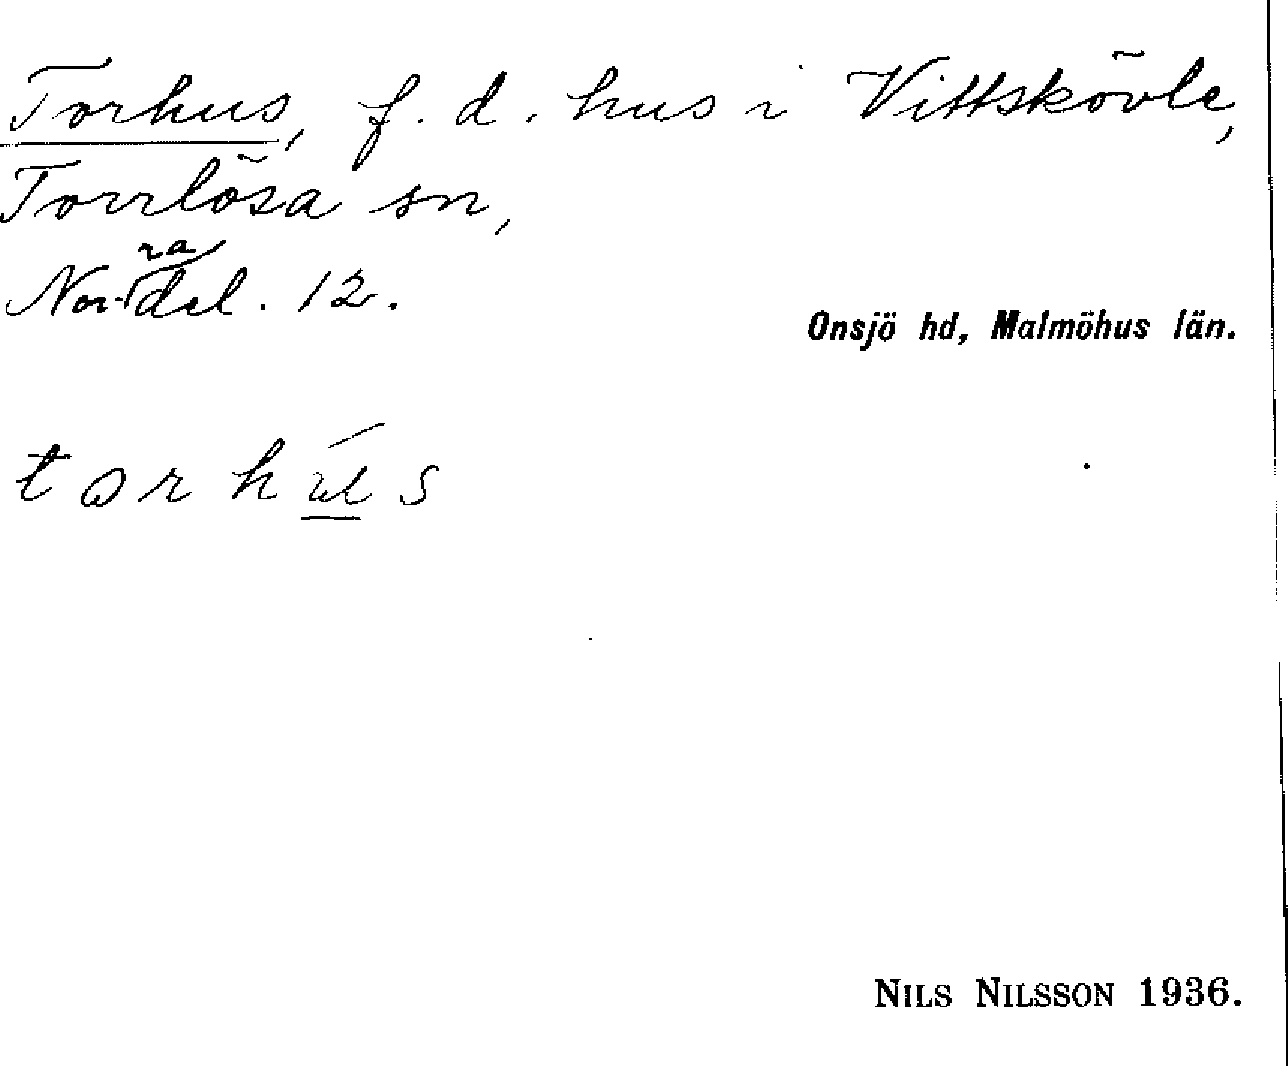 Torhus, f. d. hus i Vittskövle,
Torrlösa sn,
Norra del. 12.
Onsjö hd, Malmöhus län.
NILS NILSSON 1936.